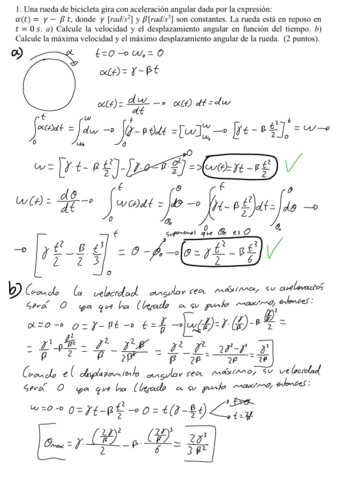 1. Una rueda de bicicleta gira con aceleración angular dada por la expresión:
α(t) = γ − β t, donde γ [rad/s²] y β[rad/s³] son constantes. La rueda está en reposo en
t = 0 s. a) Calcule la velocidad y el desplazamiento angular en función del tiempo. b)
Calcule la máxima velocidad y el máximo desplazamiento angular de la rueda. (2 puntos).
a) α t=0 → ω₀ = 0
α(t) = γ − βt
α(t) = dω/dt → α(t) dt = dω
∫₀ᵗ α(t)dt = ∫dω → ∫₀ᵗ (γ − βt)dt = [ω] → [γt − β t²/2]₀ᵗ = ω →
ω = [γt − β t²/2] − [γ·0 − β 0²/2] => ω(t) = γt − β t²/2
ω(t) = dθ/dt → ∫₀ᵗ ω(t)dt = ∫dθ → ∫₀ᵗ (γt − β t²/2)dt = ∫dθ →
suponemos que θ₀ es 0
→ [γ t²/2 − β/2 t³/3]₀ᵗ = θ − θ₀ → θ = γ t²/2 − β t³/6
b) Cuando la velocidad angular sea máxima, su aceleración
será 0 ya que ha llegado a su punto maximo, entonces:
α = 0 → 0 = γ − βt → t = γ/β → ω(γ/β) = γ·(γ/β) − β (γ/β)²/2 =
= γ²/β − β γ²/β²/2 = γ²/β − γ²β/2β² = γ²/β − γ²/2β = 2γ² − γ²/2β = γ²/2β
Cuando el desplazamiento angular sea máximo, su velocidad
será 0 ya que ha llegado a su punto maximo, entonces:
ω = 0 → 0 = γt − β t²/2 → 0 = t(γ − β/2 t) t = 0
t = 2γ/β
θmax = γ · (2γ/β)²/2 − β · (2γ/β)³/6 = 2γ³/3β²